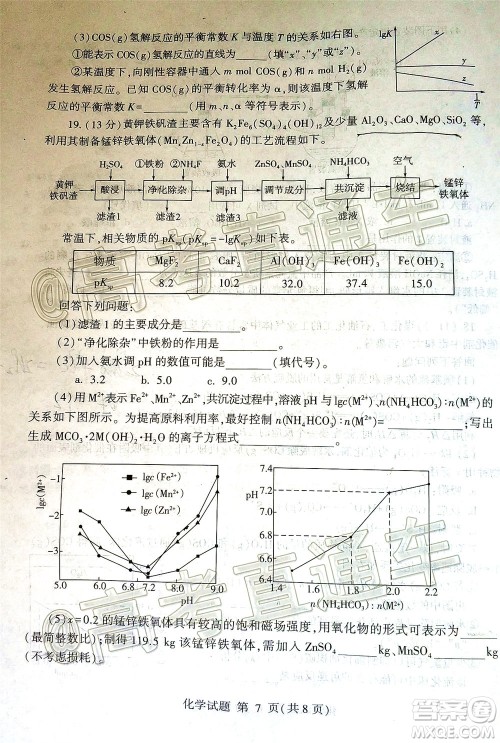 (3)COS(g)氢解反应的平衡常数K与温度T的关系如右图。
①能表示COS(g)氢解反应的直线为________(填“x”、“y”、“z”)。
②某温度下,向刚性容器中通入m mol COS(g)和n mol H₂(g)
发生氢解反应,COS(g)的平衡转化率为α,则该温度下氢解
反应的平衡常数为________(用m、n、α等符号表示)。
lgK
x
y
z
T
19.(13分)黄钾铁矾渣主要含有K₂Fe₆(SO₄)₄(OH)₁₂及少量Al₂O₃、CaO、MgO、SiO₂等,
利用其制备锰锌铁氧体(MnₓZn₁₋ₓFe₂O₄)的工艺流程如下:
H₂SO₄ ①铁粉 ②NH₄F 氨水 ZnSO₄、MnSO₄ NH₄HCO₃ 空气
黄钾铁矾渣 酸浸 净化除杂 调pH 调节成分 共沉淀 烧结 锰锌铁氧体
滤渣1 滤渣2 滤渣3 滤液
常温下,相关物质的pKsp(pKsp=−lgKsp)见下表:
物质 MgF₂ CaF₂ Al(OH)₃ Fe(OH)₃ Fe(OH)₂
pKsp 8.2 10.2 32.0 37.4 15.0
回答下列问题:
(1)滤渣1的主要成分是________。
(2)“净化除杂”中铁粉的作用是________。
(3)加入氨水调pH的数值可能是________(填代号)。
a. 3.2 b. 6.2 c. 9.0
(4)用M²⁺表示Fe²⁺、Mn²⁺、Zn²⁺,共沉淀过程中,溶液pH与lgc(M²⁺)、n(NH₄HCO₃):n(M²⁺)
的关系如下图所示。为提高原料利用率,最好控制n(NH₄HCO₃):n(M²⁺)=________,写出
生成MCO₃·2M(OH)₂·H₂O的离子方程式________。
lgc(M²⁺)
-1
-2
-3
lgc(Fe²⁺)
lgc(Mn²⁺)
lgc(Zn²⁺)
5.0 6.0 6.8 7.2 8.0 9.0
pH
pH
7.4
7.2
7.0
6.8
6.6
6.4
1.4 1.6 1.8 2.0 2.2
n(NH₄HCO₃):n(M²⁺)
(5)x=0.2的锰锌铁氧体具有较高的饱和磁场强度,用氧化物的形式可表示为________
(最简整数比);制得119.5 kg该锰锌铁氧体,需加入ZnSO₄________kg、MnSO₄________kg
(不考虑损耗)。
化学试题 第 7 页(共8页)
@高考直通车
@高考直通车
答案圈